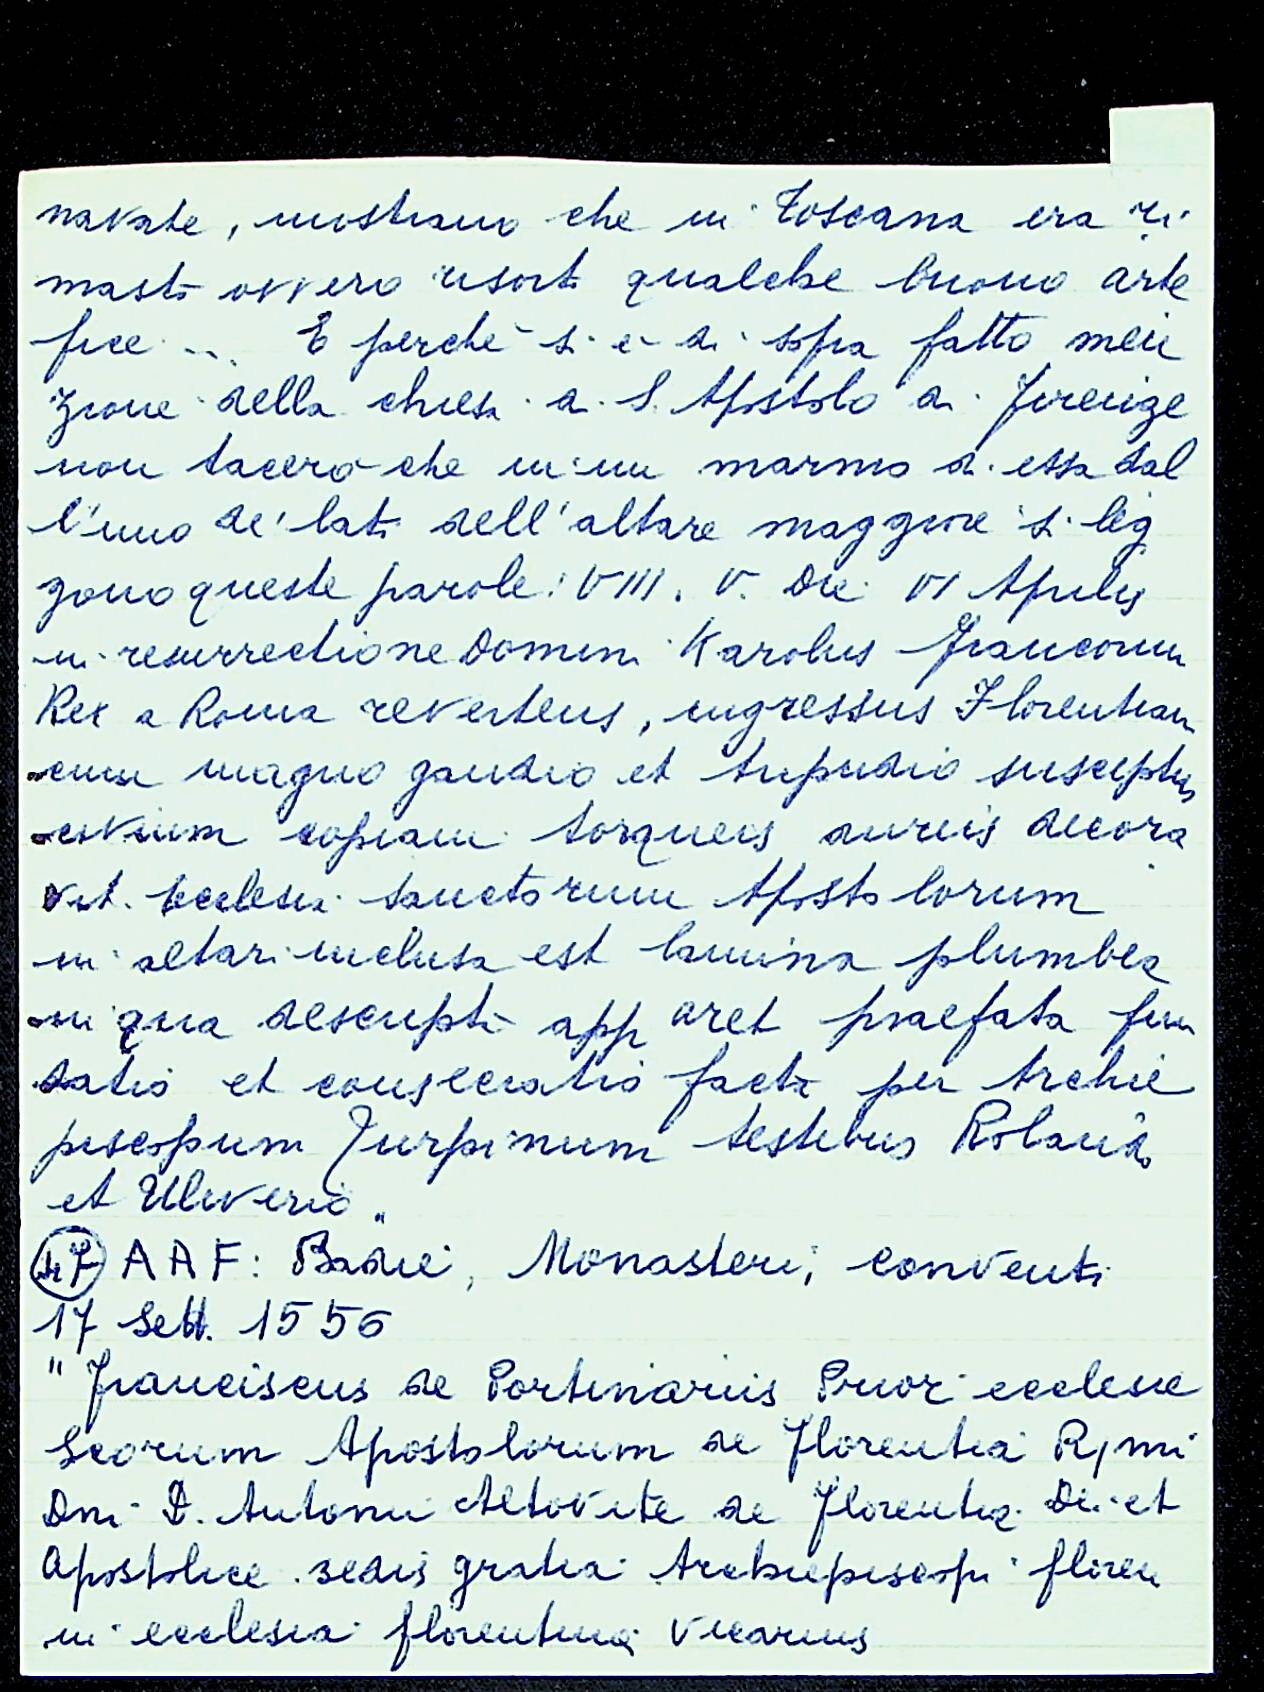 navate, mostrano che in Toscana era ri
masto ovvero risorto qualche buono arte
fice ... E perchè si è di sopra fatto men
zione della chiesa di S. Apostolo di Firenze
non tacerò che in un marmo di essa dal
l'uno de' lati dell'altare maggiore si leg
gono queste parole: VIII. V. Die VI Aprilis
in resurrectione Domini Karolus Francorum
Rex a Roma revertens, ingressus Florentiam
cum magno gaudio et tripudio susceptus
civium copiam torqueis aureis decora
vit. Ecclesia Sanctorum Apostolorum
in altari inclusa est lamina plumbea
in qua descripta apparet praefata fun
datio et consecratio facta per Archie
piscopum Turpinum testibus Rolando
et Uliverio"
AAF: Badie, Monasteri, conventi
17 Sett. 1556
"Franciscus de Portinariis Prior ecclesie
Scorum Apostolorum de Florentia R/mi
Dni D. Antonii Altovite de Florentia Dei et
Apostolice sedis gratia Archiepiscopi floren
in ecclesia florentina Vicarius